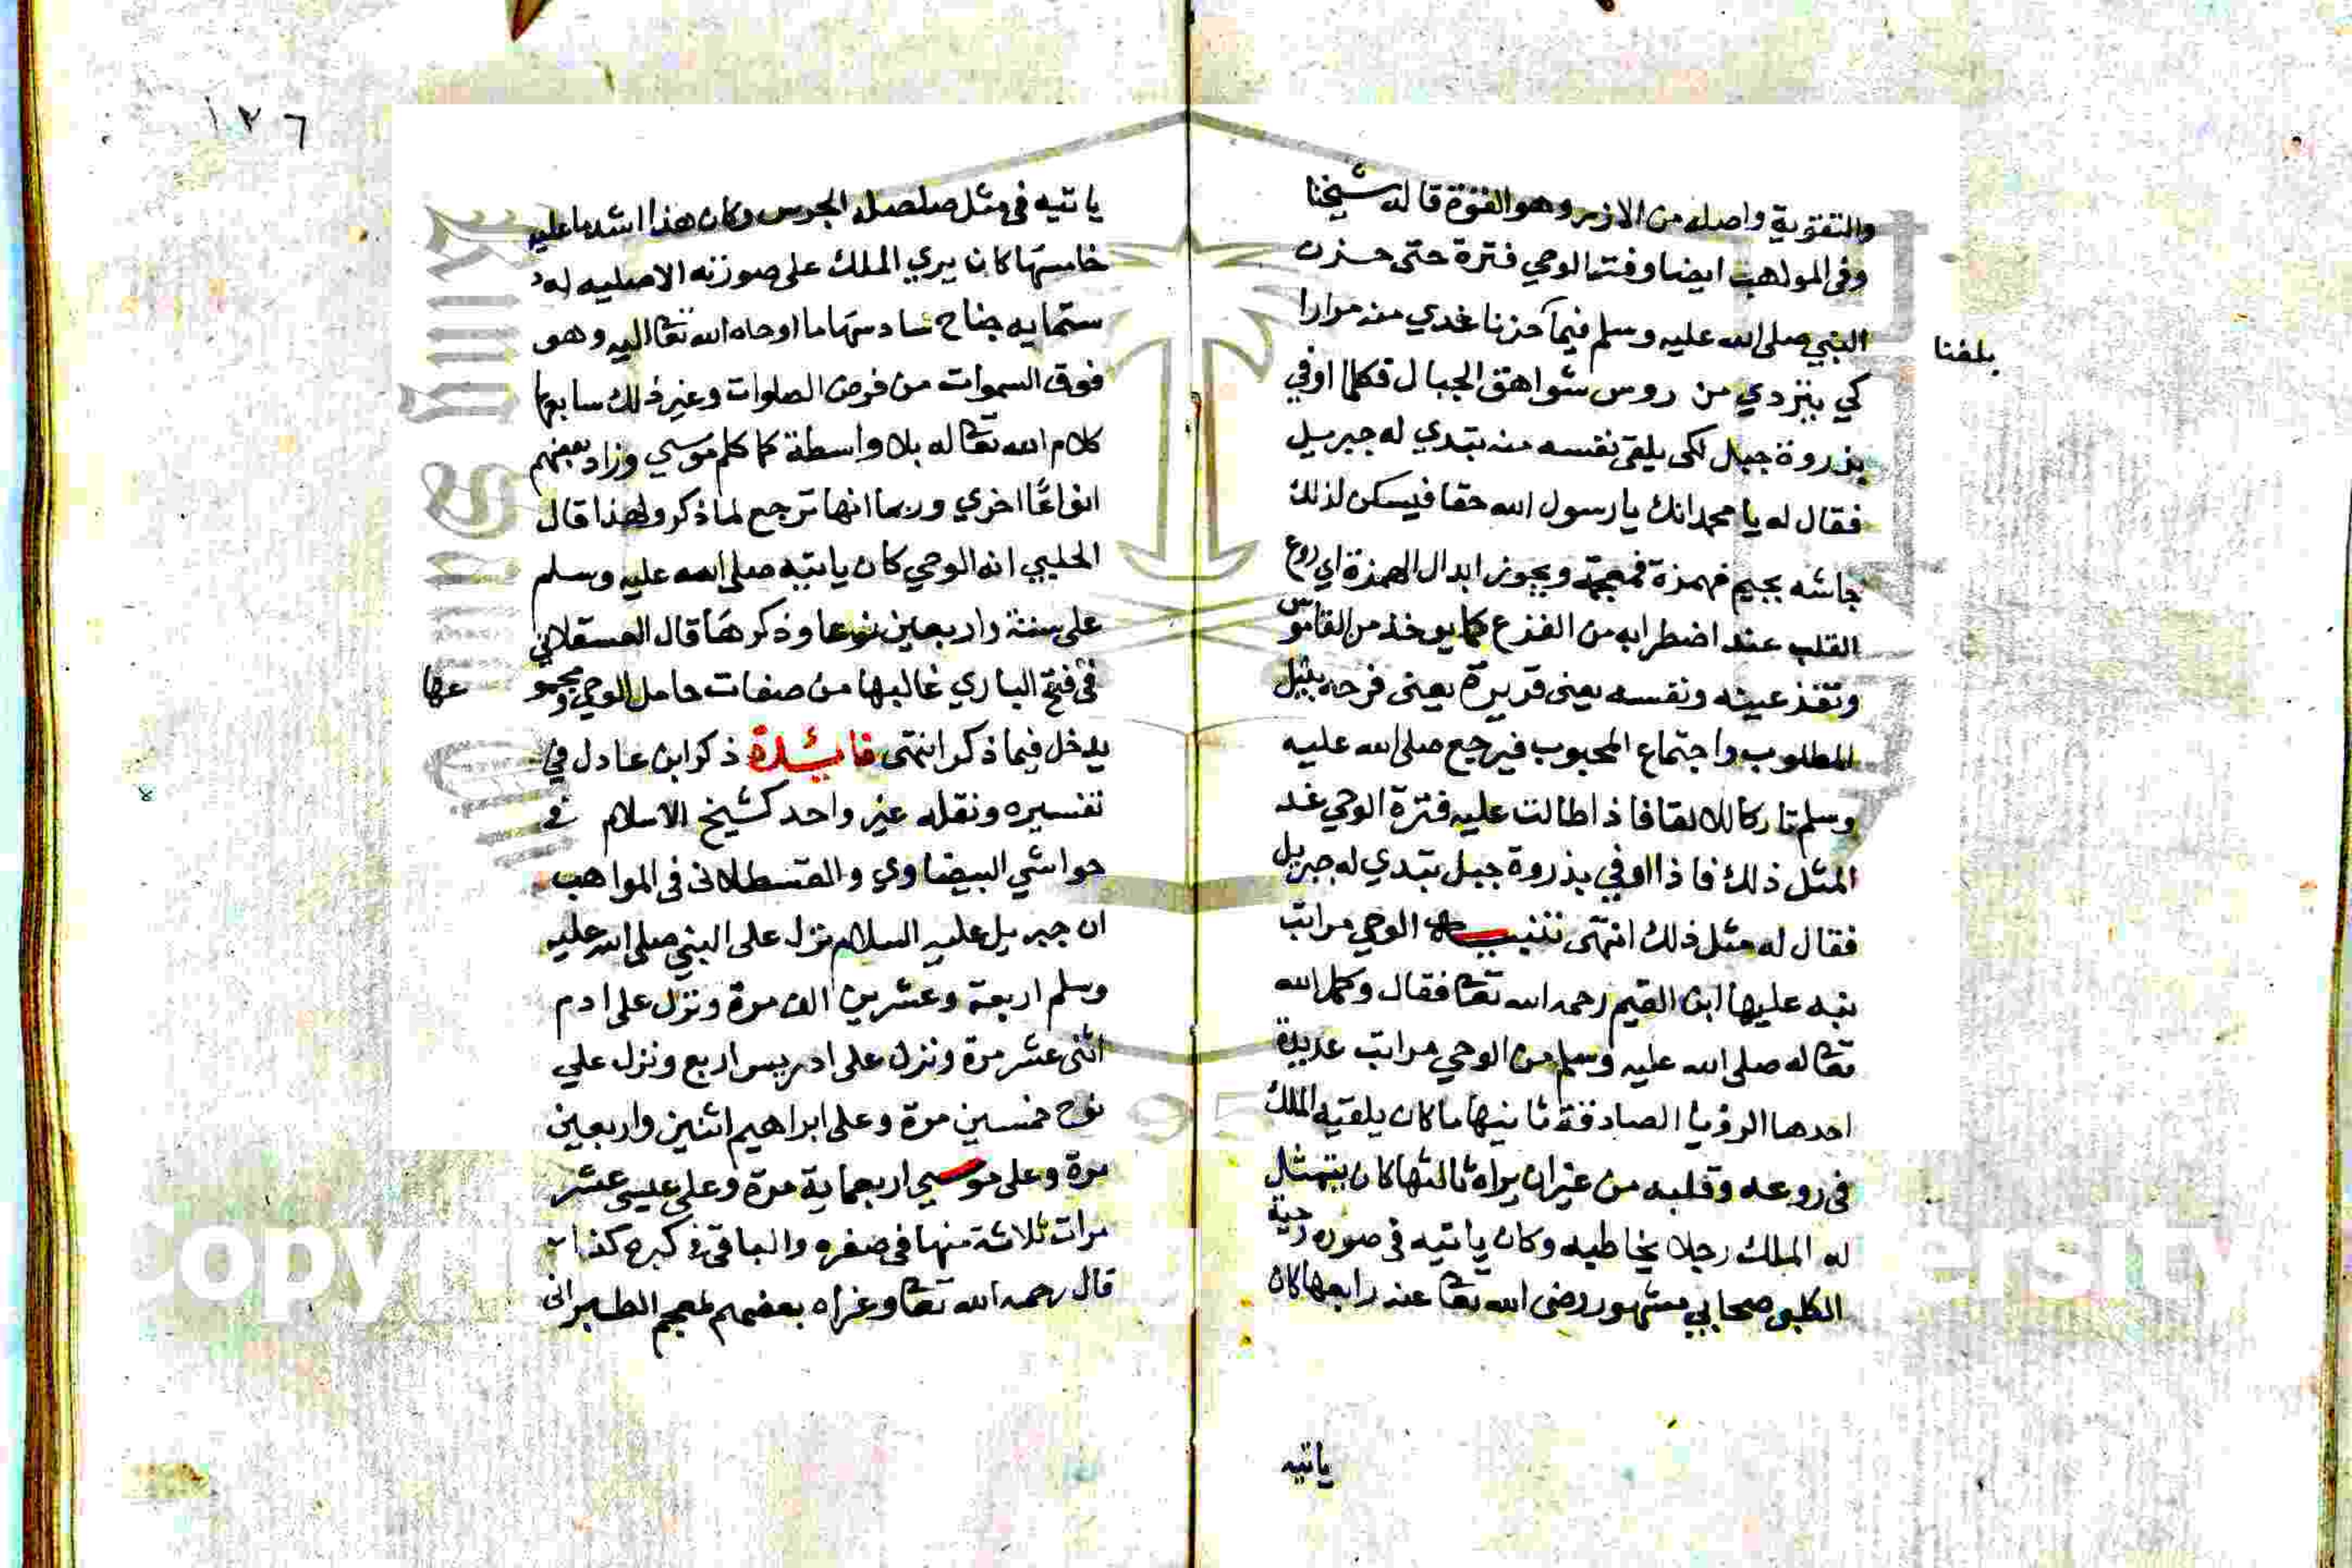 والتقوية واصله من الازر وهو القوة قاله شيخنا
وفى المواهب ايضا وفتر الوحي فترة حتى حزن
النبي صلى الله عليه وسلم فيما حزنا غدي منه مرارا
بلغنا
كي يتردي من روس شواهق الجبال فكلما اوفي
بذروة جبل لكى يلقى نفسه منه تبدي له جبريل
فقال له يا محمد انك يا رسول الله حقا فيسكن لذلك
جاشه بجيم فهمزة فمعجمة ويجوز ابدال الهمزة اي روع
القلب عند اضطرابه من الفزع كما يوخذ من القاموس
وتقذ عينه ونفسه يعنى قريرة يعنى فرحه بنيل
المطلوب واجتماع المحبوب فيرجع صلى الله عليه
وسلم تاركا للالقا فاذا طالت عليه فترة الوحي غد
المثل ذلك فاذا اوفي بذروة جبل تبدي له جبريل
فقال له مثل ذلك انتهى تنبيه الوحي مراتب
نبه عليها ابن القيم رحمه الله تعا فقال وكمل الله
تعا له صلى الله عليه وسلم من الوحي مراتب عديدة
احدها الرؤيا الصادقة ثانيها ما كان يلقيه الملك
فى روعه وقلبه من غير ان يراه ثالثها كان يتمثل
له الملك رجلا يخاطبه وكان ياتيه فى صوره دحية
الكلبي صحابي مشهور رضى الله تعا عنه رابعها كان
ياتيه
١٣٦
ياتيه فى مثل صلصلة الجرس وكان هذا اشده عليه
خامسها كان يري الملك على صورته الاصليه له
ستمايه جناح سادسها ما اوحاه الله تعا اليه وهو
فوق السموات من فرض الصلوات وغير ذلك سابعها
كلام الله تعا له بلا واسطة كما كلم موسي وزاد بعضهم
انواعًا اخري وربما انها ترجع لما ذكر ولهذا قال
الحليبي انه الوحي كان ياتيه صلى الله عليه وسلم
على ستة واربعين نوعا وذكرها قال العسقلاني
فى فتح الباري غالبها من صفات حامل الوحي ومجمو
عها
يدخل فيما ذكر انتهى فائدة ذكر ابن عادل في
تفسيره ونقله غير واحد كشيخ الاسلام في
حواشي البيضاوي والقسطلانى فى المواهب
ان جبريل عليه السلام نزل على النبي صلى الله عليه
وسلم اربعة وعشرين الف مرة ونزل على ادم
اثنى عشر مرة ونزل على ادريس اربع ونزل علي
نوح خمسين مرة وعلى ابراهيم اثنين واربعين
مرة وعلى موسي اربعماية مرة وعلى عيسى عشر
مرات ثلاثة منها فى صغره والباقى في كبره كذا
قال رحمه الله تعا وعزاه بعضهم لمعجم الطبرانى